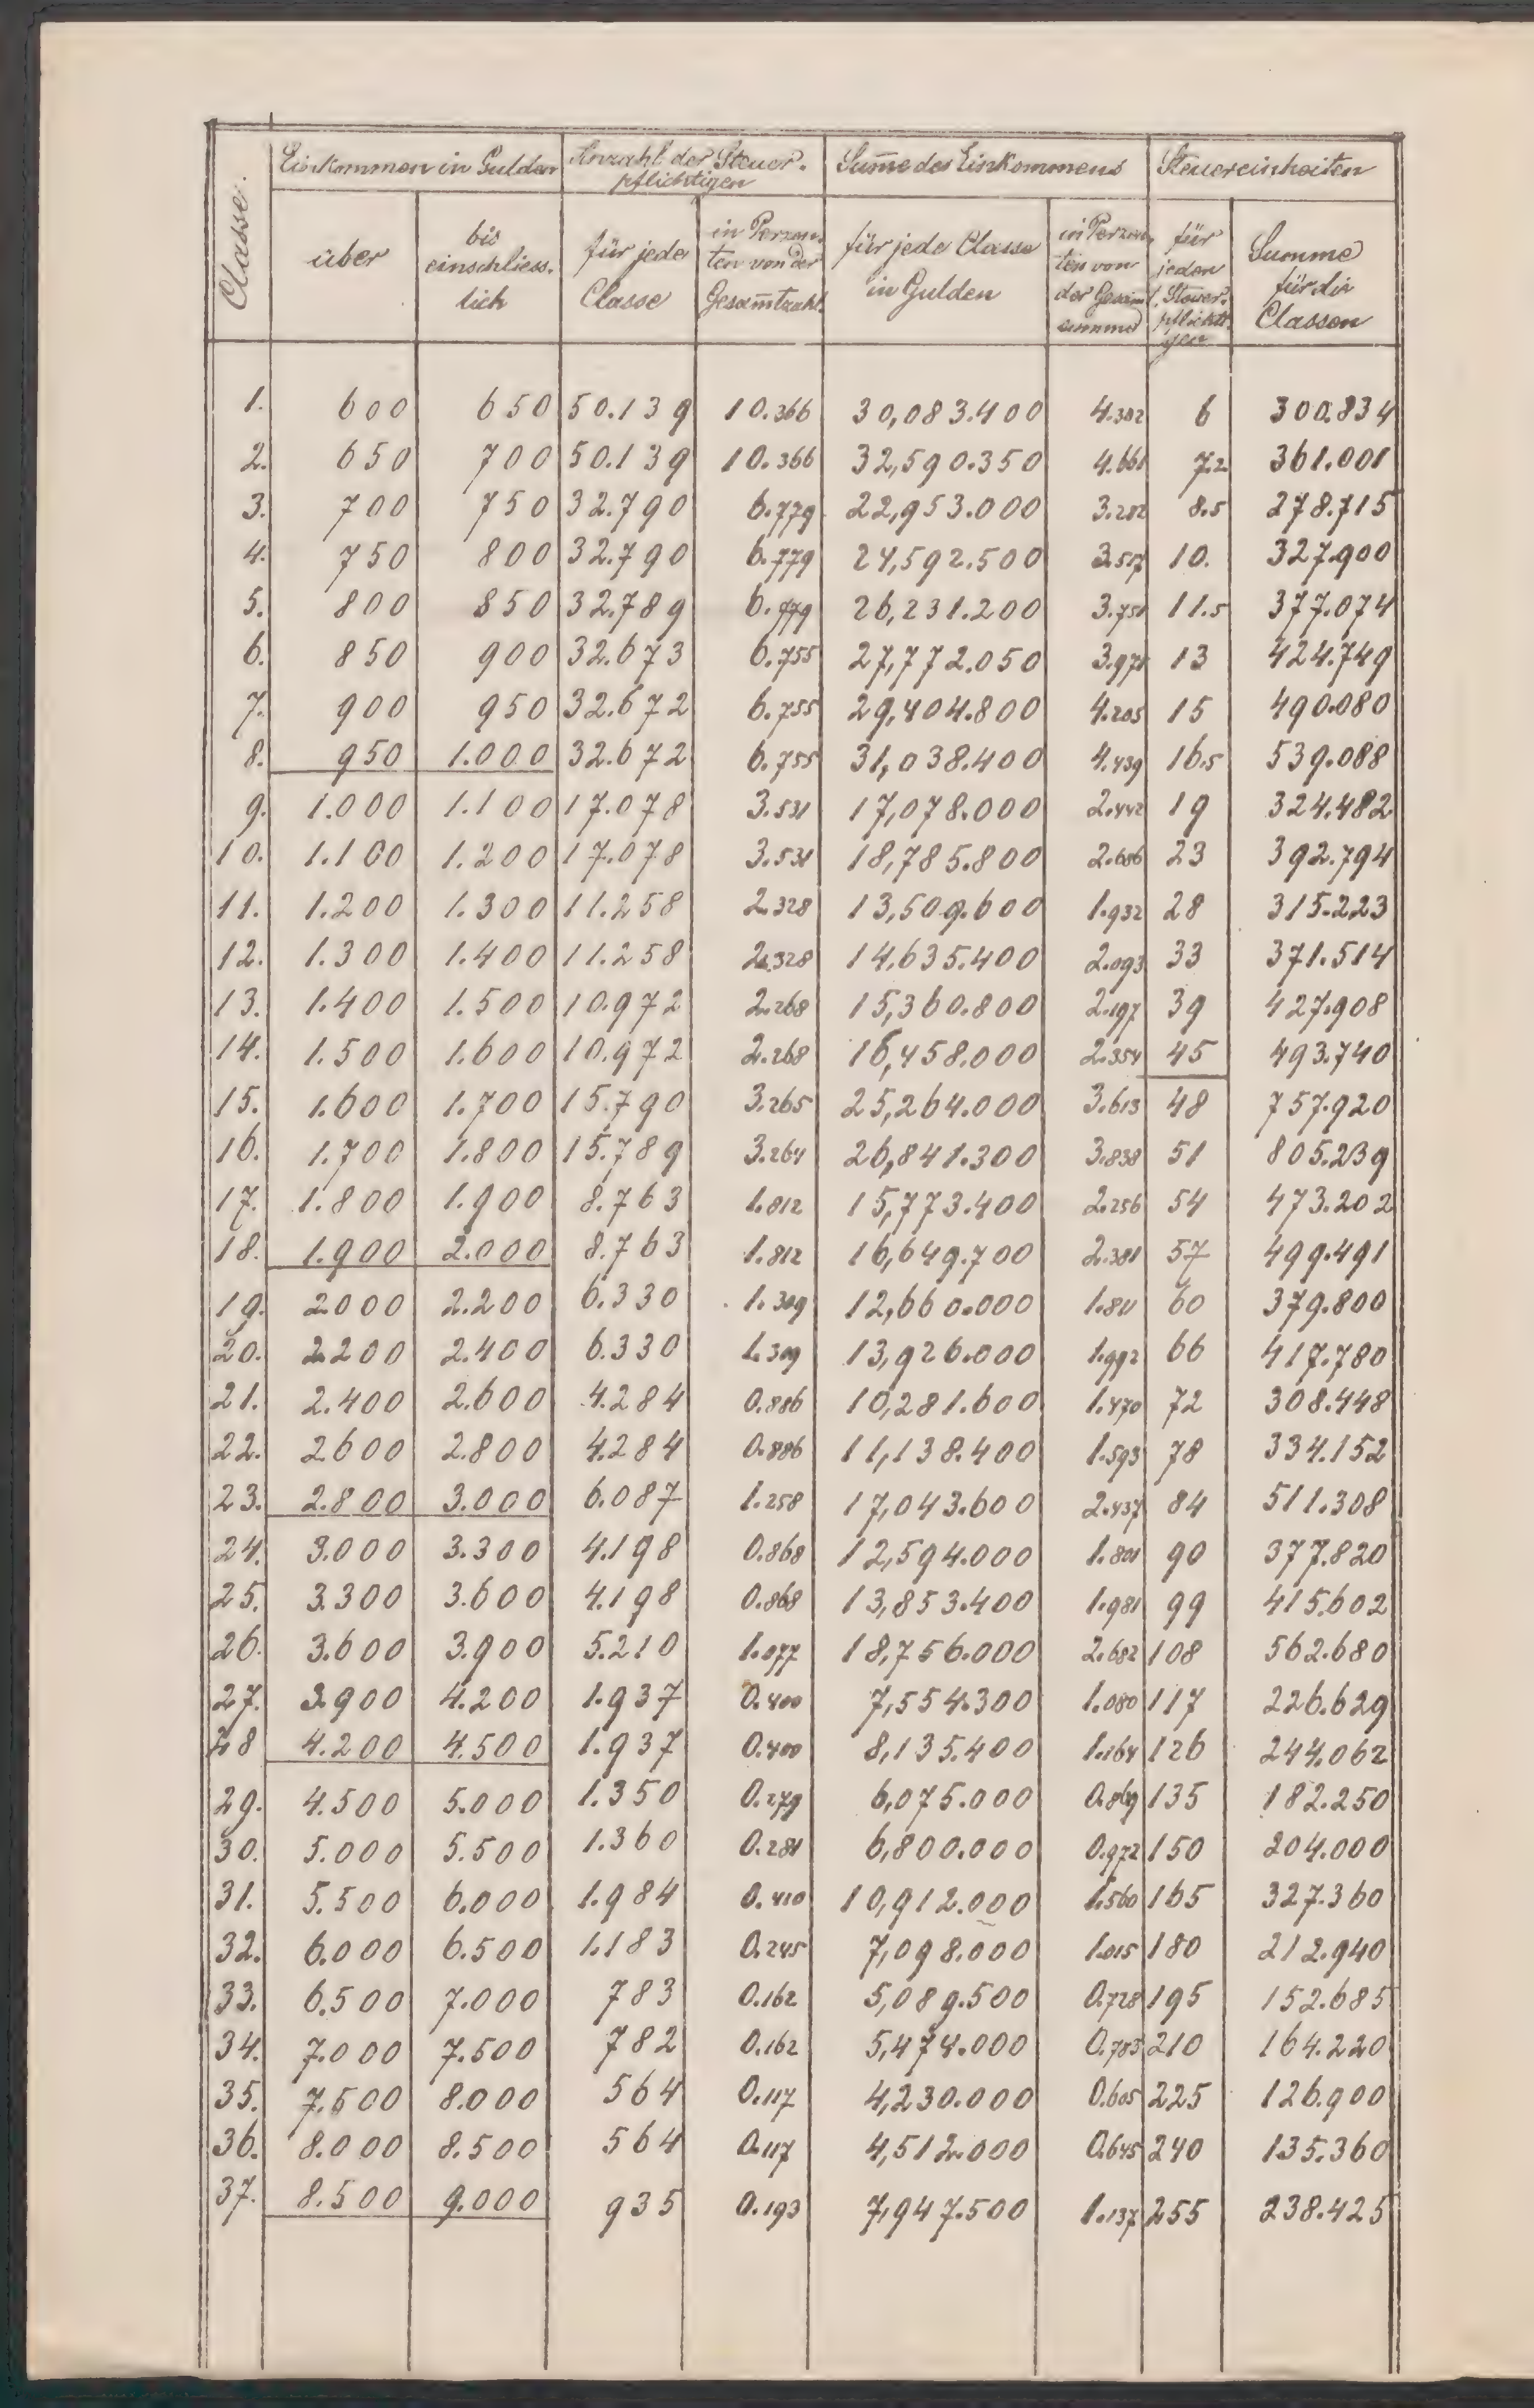 Classe.
Einkommen in Gulden
Anzahl der Steuer-
pflichtigen
Sum̄e des Einkommens
Steuereinheiten
über
bis
einschliess-
lich
für jede
Classe
in Perzen-
ten von der
Gesam̄tzahl
für jede Classe
in Gulden
in Perzen-
ten von
der Gesam̄t-
summe
für
jeden
Steuer-
pflichti-
gen
Summe
für die
Classen
1. 600 650 50.139 10.366 30,083.400 4.302 6 300.834
2. 650 700 50.139 10.366 32,590.350 4.661 7.2 361.001
3. 700 750 32.790 6.779 22,953.000 3.282 8.5 278.715
4. 750 800 32.790 6.779 24,592.500 3.517 10. 327.900
5. 800 850 32.789 6.779 26,231.200 3.751 11.5 377.074
6. 850 900 32.673 6.755 27,772.050 3.971 13 424.749
7. 900 950 32.672 6.755 29,404.800 4.205 15 490.080
8. 950 1.000 32.672 6.755 31,038.400 4.439 16.5 539.088
9. 1.000 1.100 17.078 3.531 17,078.000 2.442 19 324.482
10. 1.100 1.200 17.078 3.531 18,785.800 2.686 23 392.794
11. 1.200 1.300 11.258 2.328 13,509.600 1.932 28 315.223
12. 1.300 1.400 11.258 2.328 14,635.400 2.093 33 371.514
13. 1.400 1.500 10.972 2.268 15,360.800 2.197 39 427.908
14. 1.500 1.600 10.972 2.268 16,458.000 2.354 45 493.740
15. 1.600 1.700 15.790 3.265 25,264.000 3.613 48 757.920
16. 1.700 1.800 15.789 3.264 26,841.300 3.838 51 805.239
17. 1.800 1.900 8.763 1.812 15,773.400 2.256 54 473.202
18. 1.900 2.000 8.763 1.812 16,649.700 2.381 57 499.491
19. 2.000 2.200 6.330 1.309 12,660.000 1.811 60 379.800
20. 2.200 2.400 6.330 1.309 13,926.000 1.992 66 417.780
21. 2.400 2.600 4.284 0.886 10,281.600 1.470 72 308.448
22. 2.600 2.800 4.284 0.886 11,138.400 1.593 78 334.152
23. 2.800 3.000 6.087 1.258 17,043.600 2.437 84 511.308
24. 3.000 3.300 4.198 0.868 12,594.000 1.801 90 377.820
25. 3.300 3.600 4.198 0.868 13,853.400 1.981 99 415.602
26. 3.600 3.900 5.210 1.077 18,756.000 2.682 108 562.680
27. 3.900 4.200 1.937 0.400 7,554.300 1.080 117 226.629
28 4.200 4.500 1.937 0.400 8,135.400 1.164 126 244.062
29. 4.500 5.000 1.350 0.279 6,075.000 0.869 135 182.250
30. 5.000 5.500 1.360 0.281 6,800.000 0.972 150 204.000
31. 5.500 6.000 1.984 0.410 10,912.000 1.560 165 327.360
32. 6.000 6.500 1.183 0.245 7,098.000 1.015 180 212.940
33. 6.500 7.000 783 0.162 5,089.500 0.728 195 152.685
34. 7.000 7.500 782 0.162 5,474.000 0.783 210 164.220
35. 7.500 8.000 564 0.117 4,230.000 0.605 225 126.900
36. 8.000 8.500 564 0.117 4,512.000 0.645 240 135.360
37. 8.500 9.000 935 0.193 7,947.500 1.137 255 238.425